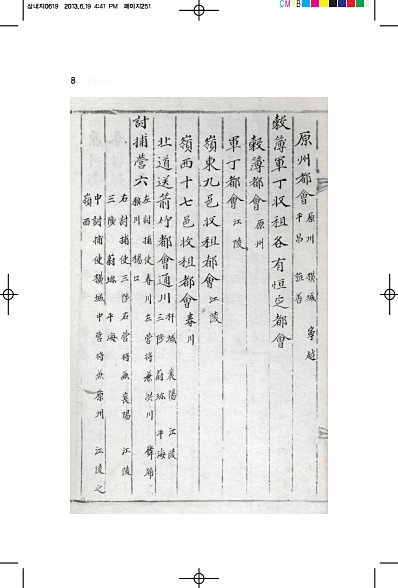 삼내지0619 2013.6.19 4:41 PM 페이지251
CM
8
原州都會 原州 橫城 寧越
平昌 旌善
穀簿軍丁収租各有恒定都會
穀簿都會 原州
軍丁都會 江陵
嶺東九邑収租都會 江陵
嶺西十七邑収租都會 春川
北道送箭竹都會通川 杆城 襄陽 江陵
三陟 蔚珍 平海
討捕營六 左討捕使春川左營將兼洪川
狼川 楊口
右討捕使三陟右營將兼襄陽 江陵
三陟 蔚珍 平海
中討捕使橫城中營將兼原州 江陵之
嶺西